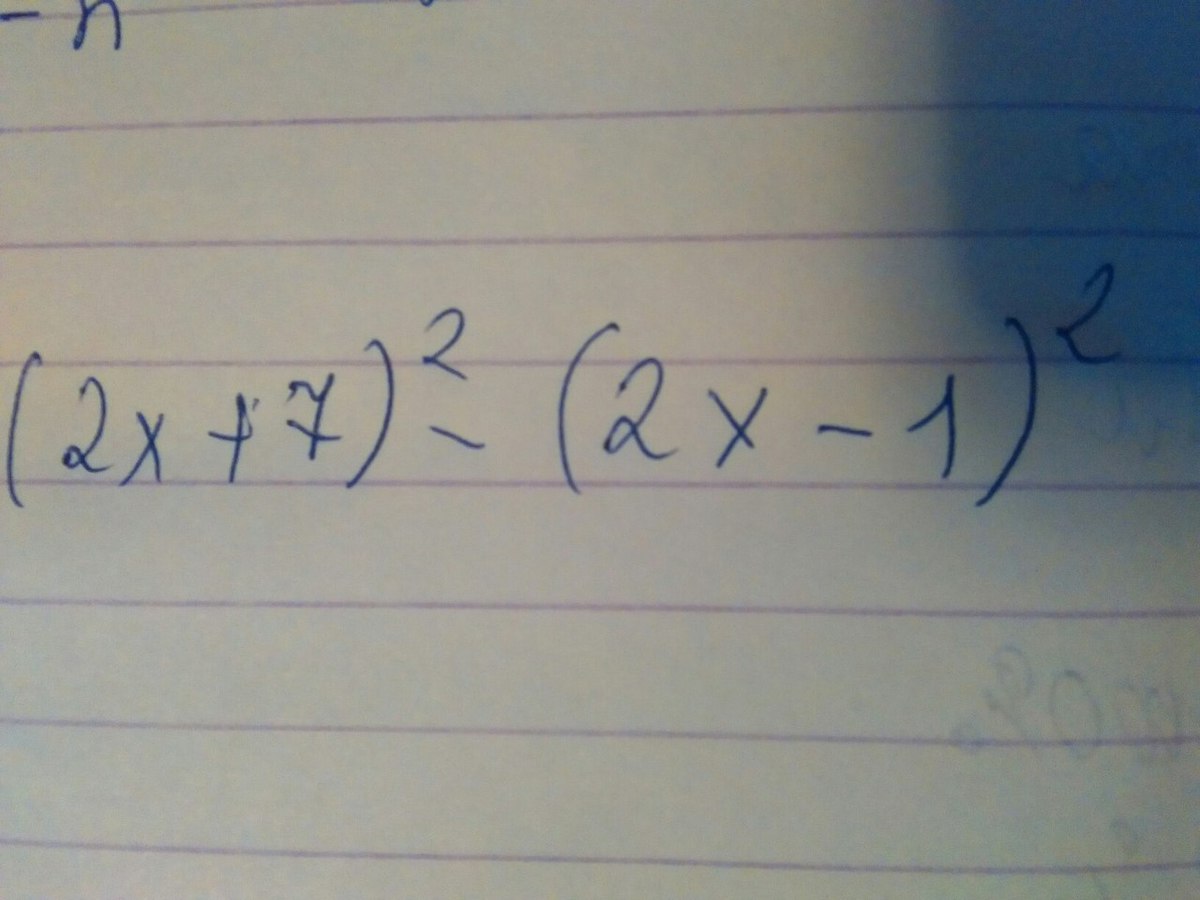 -n
(2x+7)² - (2x-1)²